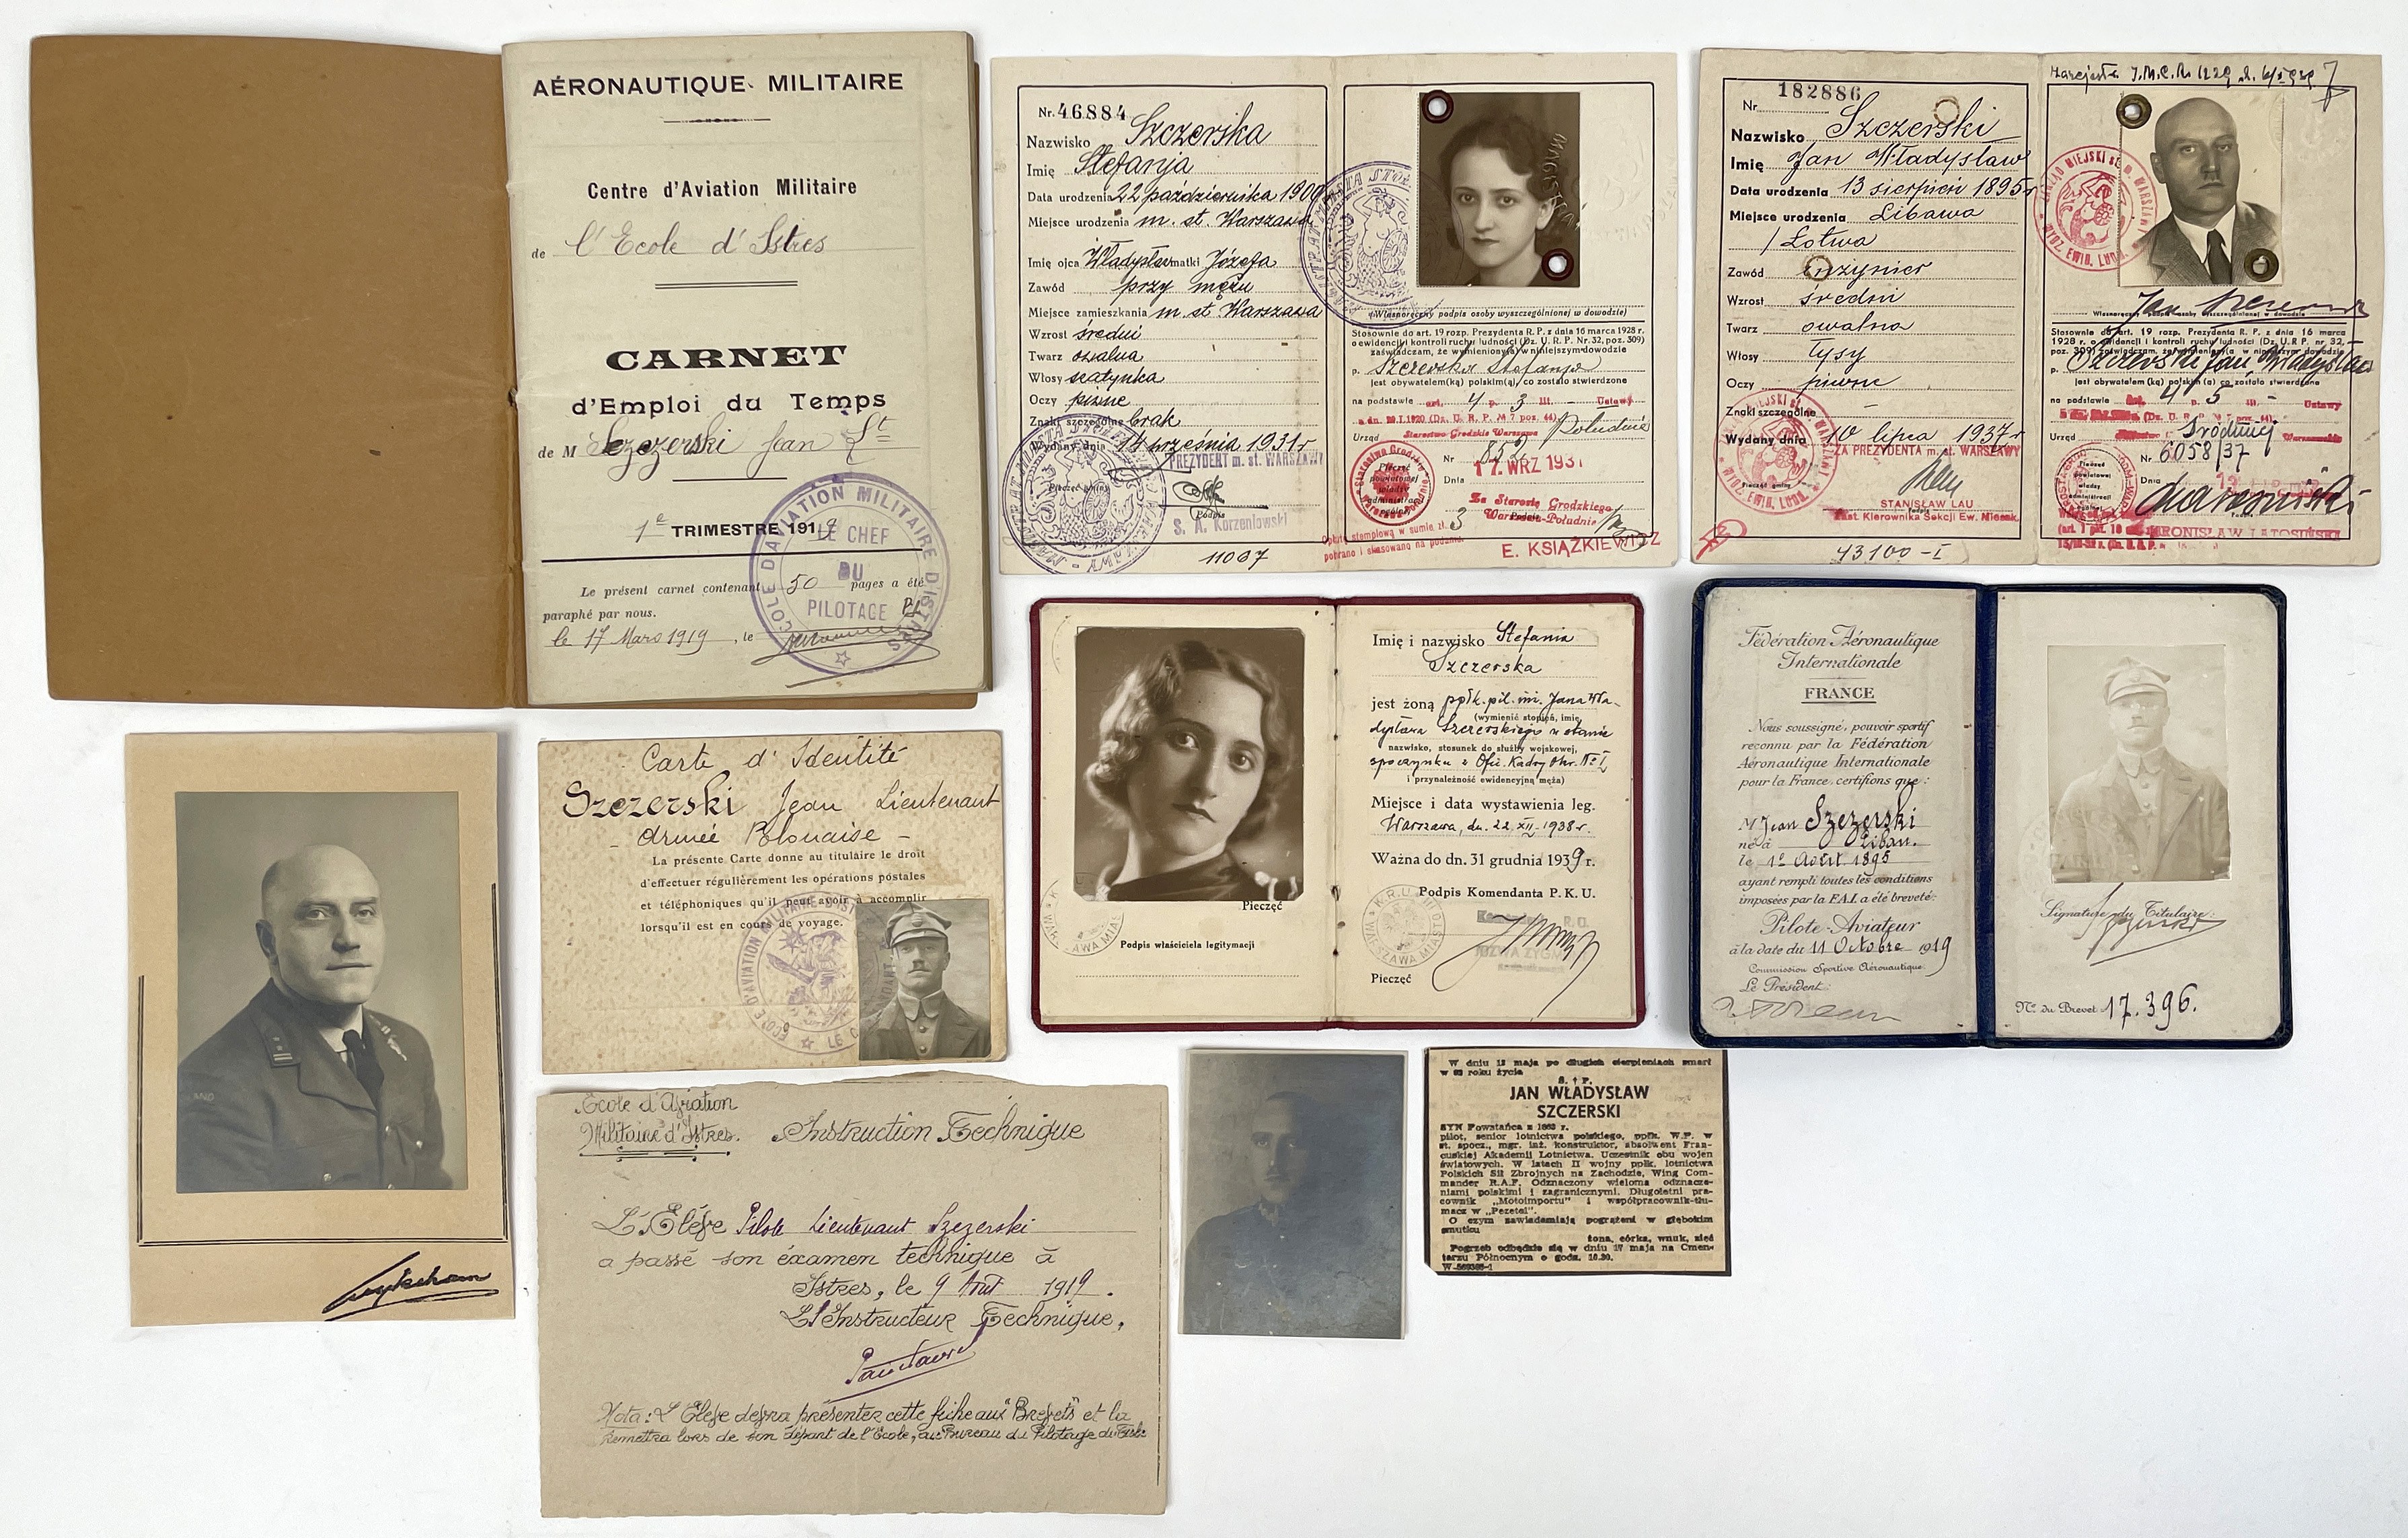 AÉRONAUTIQUE MILITAIRE
Centre d'Aviation Militaire
de l'Ecole d'Istres
CARNET
d'Emploi du Temps
de M Szczerski Jean Lt
1e TRIMESTRE 1919
Le présent carnet contenant 50 pages a été
paraphé par nous.
le 17 Mars 1919, le
ÉCOLE D'AVIATION MILITAIRE D'ISTRES
LE CHEF
DU
PILOTAGE
Nr. 46884
Nazwisko Szczerska
Imię Stefanja
Data urodzenia 22 października 1900
Miejsce urodzenia m. st. Warszawa
Imię ojca Władysław matki Józefa
Zawód przy mężu
Miejsce zamieszkania m. st. Warszawa
Wzrost średni
Twarz owalna
Włosy szatynka
Oczy piwne
Znaki szczególne brak
Wydany dnia 14 września 1931 r
PREZYDENT m. st. WARSZAWY
Pieczęć gminy
Podpis
S. A. Korzeniowski
11067
(Własnoręczny podpis osoby wyszczególnionej w dowodzie)
Stosownie do art. 19 rozp. Prezydenta R. P. z dnia 16 marca 1928 r.
o ewidencji i kontroli ruchu ludności (Dz. U. R. P. Nr. 32, poz. 309)
zaświadczam, że wymieniony(a) w niniejszym dowodzie
p. Szczerska Stefanja
jest obywatelem(ką) polskim(ą), co zostało stwierdzone
na podstawie art. 4 p. 3 Ustawy
z dn. 20.I.1920 (Dz. U. R. P. № 7 poz. 44)
Urząd Starostwo Grodzkie Warszawa Południe
Nr 852
Dnia 17. WRZ 1931
Za Starostę Grodzkiego
Warszawa-Południe
Opłatę stemplową w sumie zł. 3
pobrano i skasowano na podaniu.
E. KSIĄŻKIEWICZ
Nr 182886
Nazwisko Szczerski
Imię Jan Władysław
Data urodzenia 13 sierpień 1895 r
Miejsce urodzenia Libawa
/Łotwa
Zawód inżynier
Wzrost średni
Twarz owalna
Włosy łysy
Oczy piwne
Znaki szczególne –
Wydany dnia 10 lipca 1937 r
ZA PREZYDENTA m. st. WARSZAWY
Pieczęć gminy
STANISŁAW LAU
Zast. Kierownika Sekcji Ew. Mieszk.
43100-I
ZARZĄD MIEJSKI st. m. WARSZAWY
WYDZ. EWID. LUDN.
Stosownie do art. 19 rozp. Prezydenta R. P. z dnia 16 marca
1928 r. o ewidencji i kontroli ruchu ludności (Dz. U.R.P. nr 32,
poz. 309) zaświadczam, że wymieniony(a) w niniejszym dowodzie
p. Szczerski Jan Władysław
jest obywatelem (ką) polskim(ą) co zostało stwierdzone
na podstawie Art. 4 p. 5 Ustawy
Urząd Śródmiej Warszawskie
Nr 6058/37
Dnia
BRONISŁAW LATOSIŃSKI
Imię i nazwisko Stefania
Szczerska
jest żoną ppłk. pil. inż. Jana Wła-
(wymienić stopień, imię,
dysława Szczerskiego w stanie
nazwisko, stosunek do służby wojskowej,
spoczynku z Ofic. Kadry Okr. Nr I
i przynależność ewidencyjną męża)
Miejsce i data wystawienia leg.
Warszawa, dn. 22.XII.1938 r.
Ważna do dn. 31 grudnia 1939 r.
Podpis Komendanta P. K. U.
Pieczęć
Pieczęć
Podpis właściciela legitymacji
Fédération Aéronautique
Internationale
FRANCE
Nous soussigné, pouvoir sportif
reconnu par la Fédération
Aéronautique Internationale
pour la France, certifions que:
M Jean Szczerski
né à Liban.
le 1er Août 1895
ayant rempli toutes les conditions
imposées par la F.A.I. a été breveté:
Pilote-Aviateur
à la date du 11 Octobre 1919
Commission Sportive Aéronautique
Le Président:
Signature du Titulaire:
No du Brevet 17.396.
Carte d'Identité
Szczerski Jean Lieutenant
Armée Polonaise –
La présente Carte donne au titulaire le droit
d'effectuer régulièrement les opérations postales
et téléphoniques qu'il peut avoir à accomplir
lorsqu'il est en cours de voyage.
Ecole d'Aviation
Militaire d'Istres.
Instruction Technique
L'Elève Pilote Lieutenant Szczerski
a passé son éxamen technique à
Istres, le 9 Aout 1919.
L'Instructeur Technique,
Nota: L'Elève devra présenter cette fiche aux "Brevets" et la
remettra lors de son départ de l'Ecole, au Bureau du Pilotage
W dniu 12 maja po długich cierpieniach zmarł
w roku życia
Ś. † P.
JAN WŁADYSŁAW
SZCZERSKI
SYN Powstańca z 1863 r.
pilot, senior lotnictwa polskiego, ppłk. W.P. w
st. spocz., mgr. inż. konstruktor, absolwent Fran-
cuskiej Akademii Lotnictwa. Uczestnik obu wojen
światowych. W latach II wojny ppłk. lotnictwa
Polskich Sił Zbrojnych na Zachodzie, Wing Com-
mander R.A.F. Odznaczony wieloma odznacze-
niami polskimi i zagranicznymi. Długoletni pra-
cownik „Motoimportu” i współpracownik-tłu-
macz w „Pezetel”.
O czym zawiadamiają pogrążeni w głębokim
smutku
żona, córka, wnuk, zięć
Pogrzeb odbędzie się w dniu 17 maja na Cmen-
tarzu Północnym o godz. 10.30.